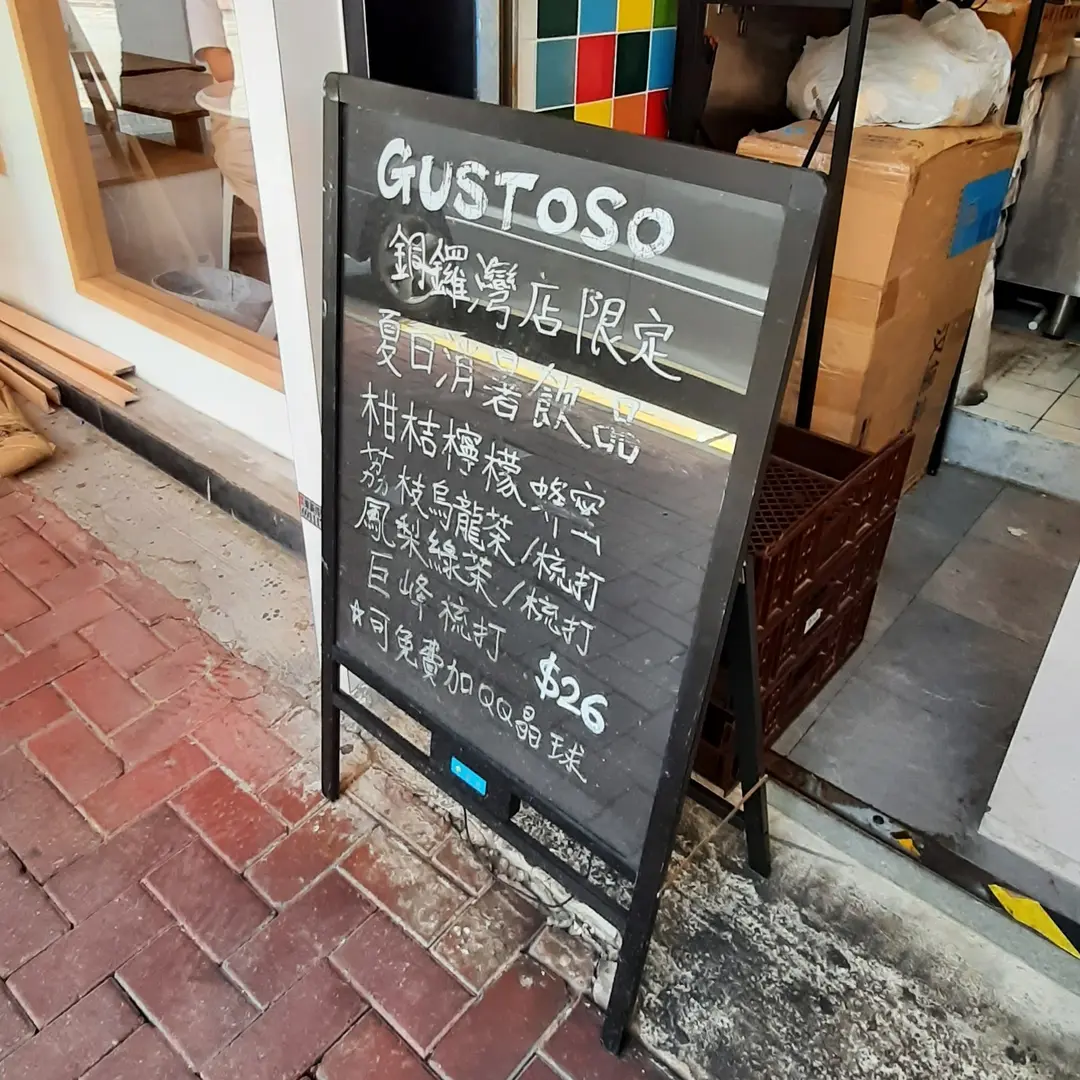 GUSTOSO
銅鑼灣店限定
夏日消暑飲品
柑桔檸檬蜂蜜
荔枝烏龍茶/梳打
鳳梨綠茶/梳打
巨峰梳打
$26
☆可免費加QQ晶球